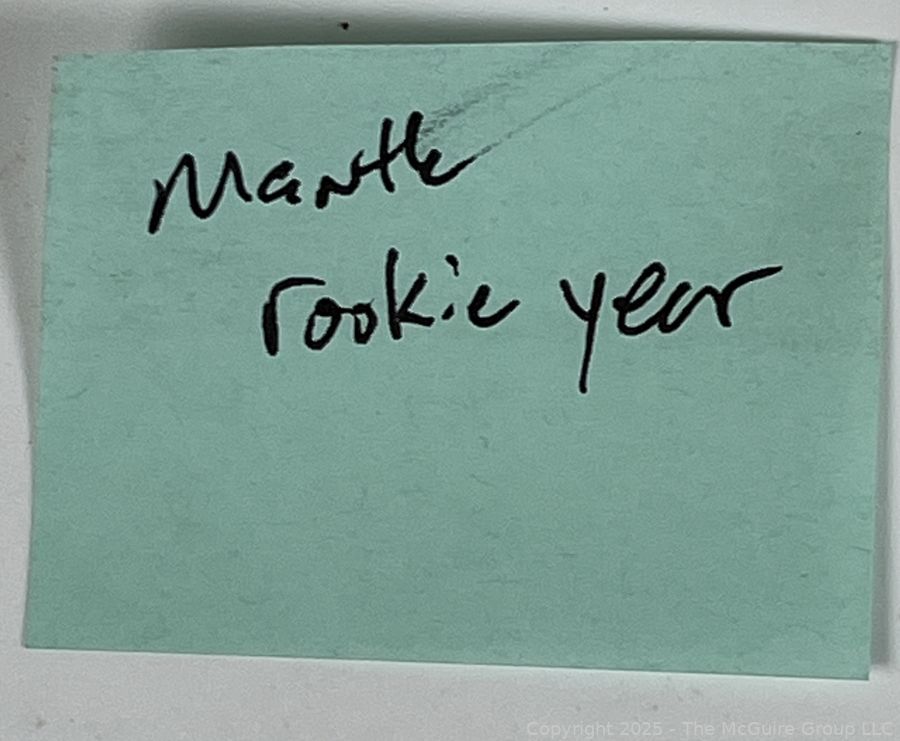 Mantle
rookie year
Copyright 2025 - The McGuire Group LLC